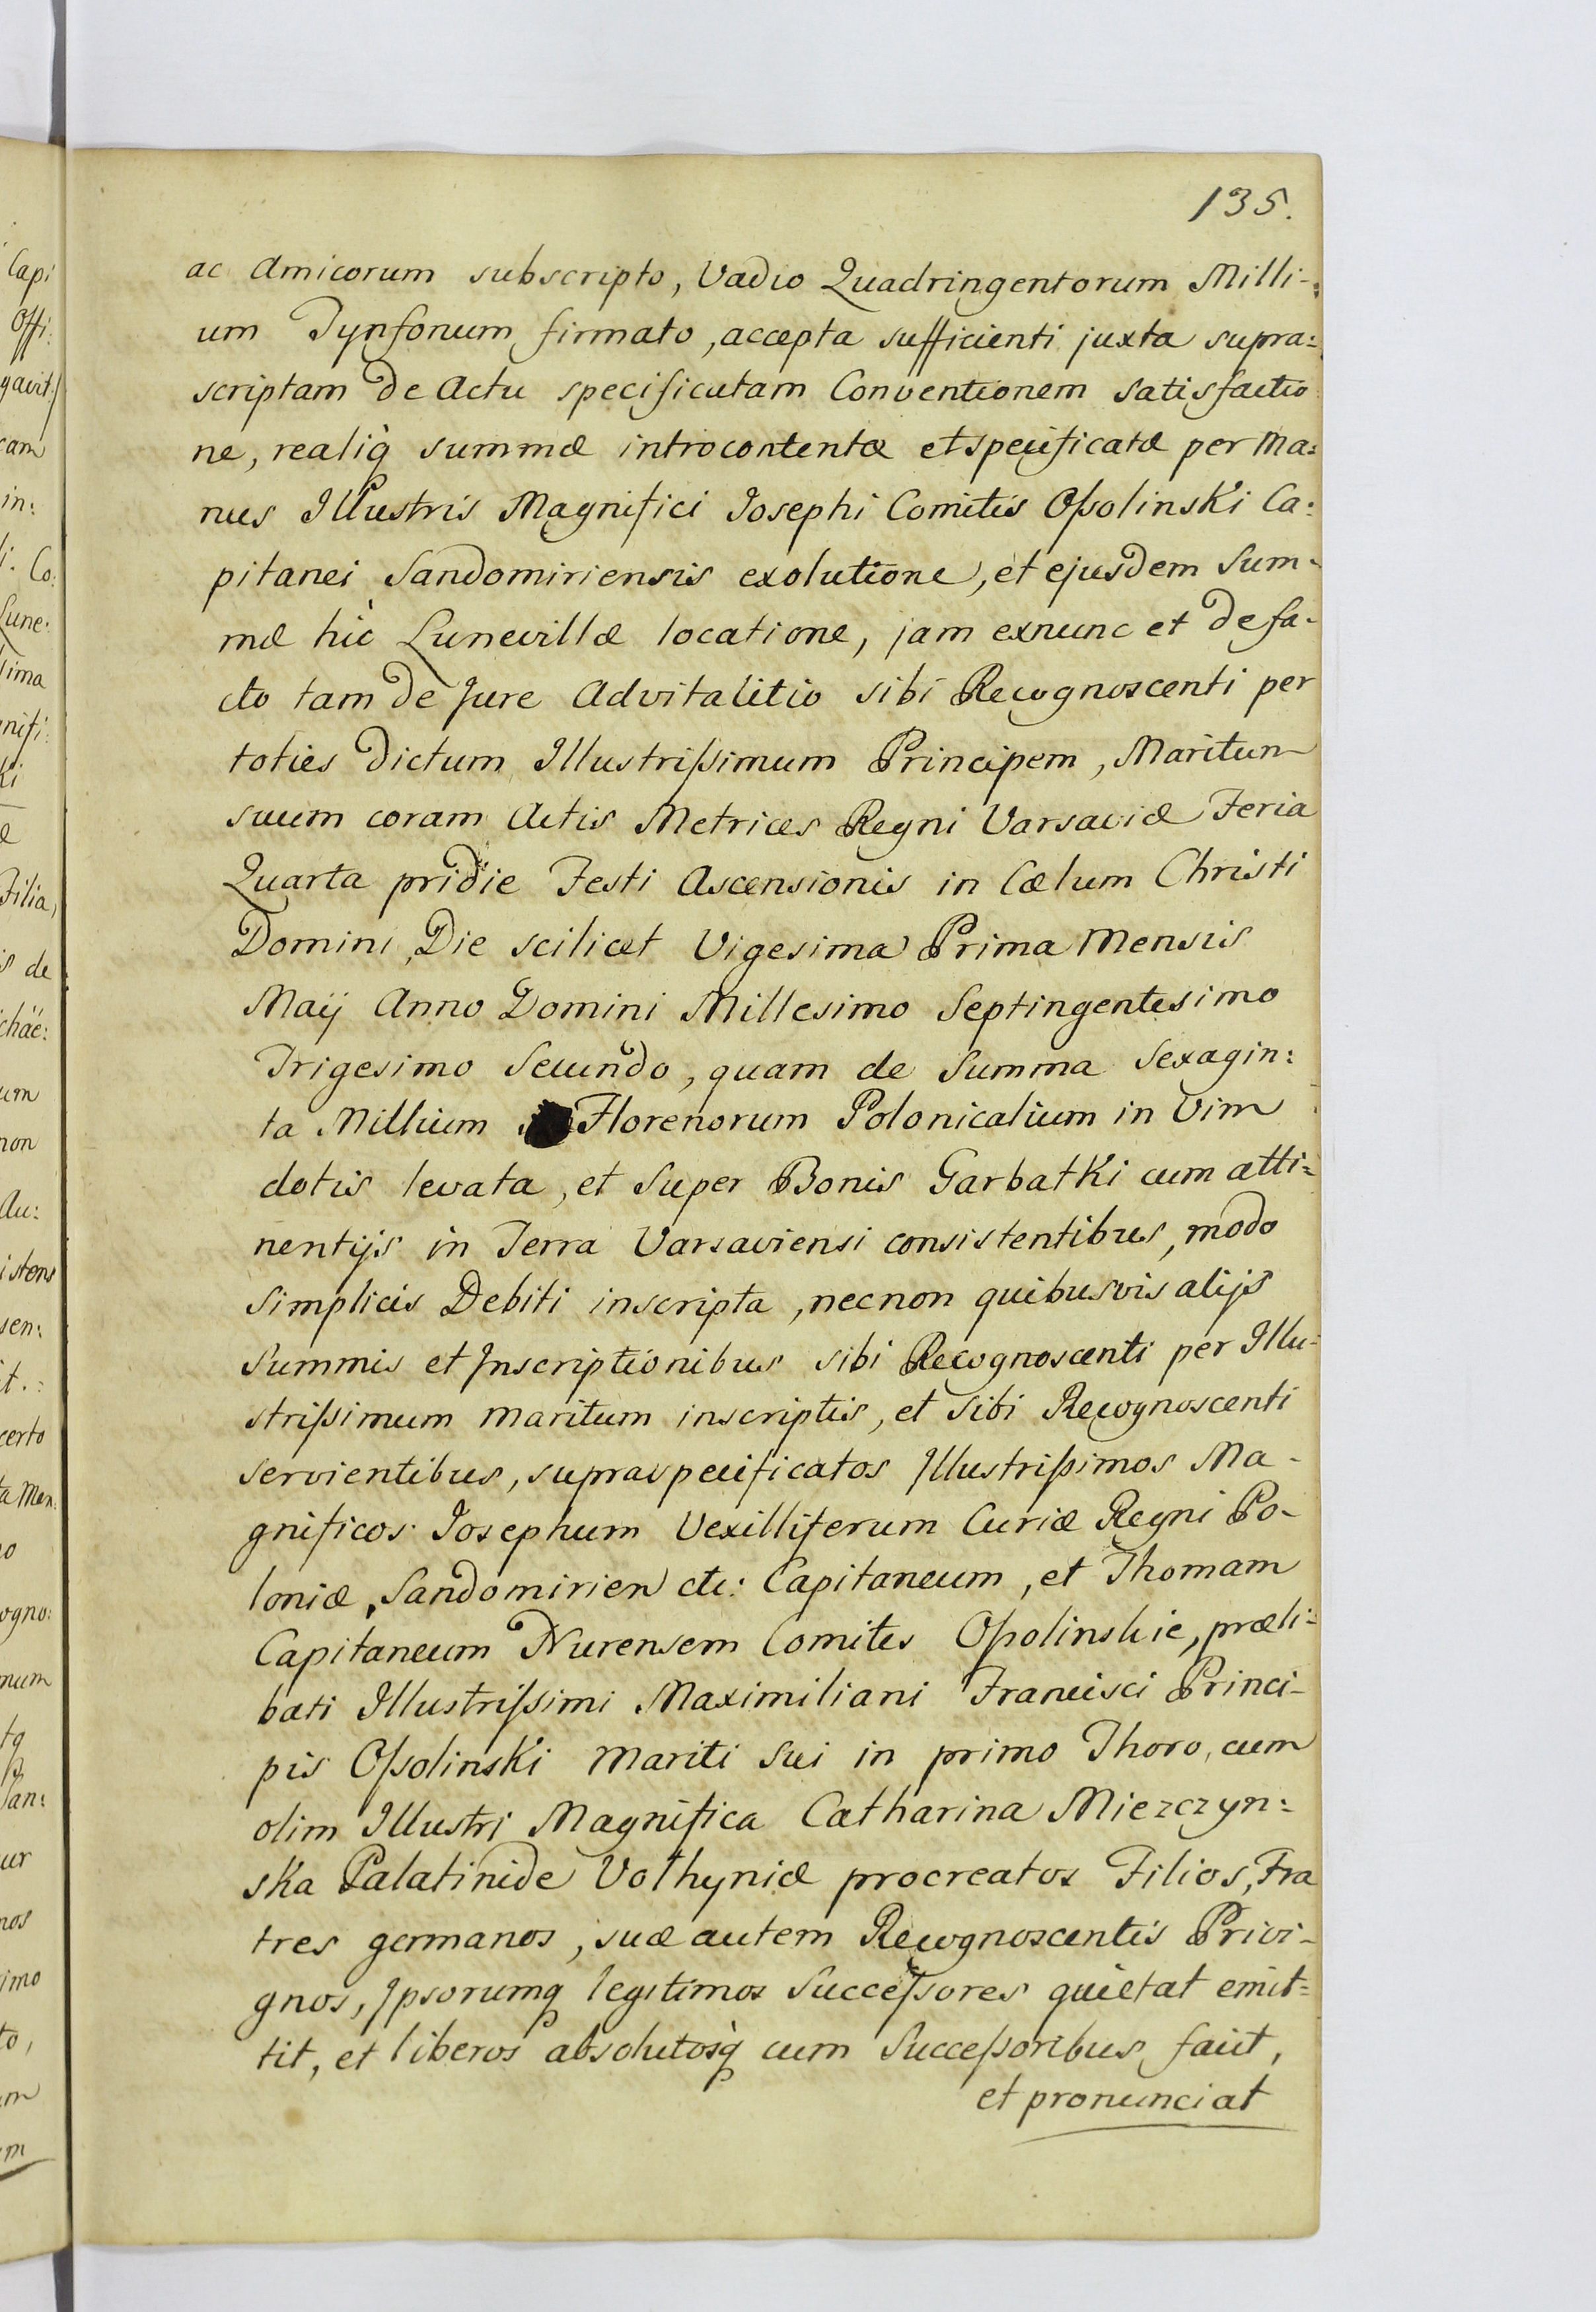 135.
ac Amicorum subscripto, Vadio Quadringentorum Milli-
um Tynfonum firmato, accepta sufficienti juxta supra=
scriptam de Actu specificatam Conventionem satisfactio
ne, realiq̀ summæ introcontentæ et specificatæ per Ma=
nus Illustris Magnifici Josephi Comitis Oſsolinski Ca=
pitanei Sandomiriensis exolutione, et ejusdem Sum=
mæ hìc Lunevillæ locatione, jam exnunc et de fa-
cto tam de Jure Advitalitio sibi Recognoscenti per
toties dictum Illustriſsimum Principem, Maritum
suum coram Actis Metrices Regni Varsaviæ Feria
Quarta pridie Festi Ascensionis in Cælum Christi
Domini, Die scilicet Vigesima Prima Mensis
Maij Anno Domini Millesimo Septingentesimo
Trigesimo Secundo, quam de Summa Sexagin=
ta Millium Florenorum Polonicalium in Vim
dotis levata, et Super Bonis Garbatki cum atti=
nentijs in Terra Varsaviensi consistentibus, modo
Simplicis Debiti inscripta, necnon quibusvis alijs
Summis et Inscriptionibus sibi Recognoscenti per Illu=
striſsimum maritum inscriptis, et Sibi Recognoscenti
servientibus, supraspecificatos Illustriſsimos Ma-
gnificos Josephum Vexilliferum Curiæ Regni Po-
loniæ, Sandomirien etc: Capitaneum, et Thomam
Capitaneum Nurensem Comites Oſsolinskie, præli=
bati Illustriſsimi Maximiliani Francisci Princi-
pis Oſsolinski Mariti Sui in primo Thoro, cum
olim Illustri Magnifica Catharina Miezczyn=
ska Palatinide Volhyniæ procreatos Filios, Fra
tres germanos, suæ autem Recognoscentis Privi-
gnos, Ipsorumq legitimos Succeſsores quietat emit=
tit, et liberos absolutosq̀ cum Succeſsoribus facit,
et pronunciat